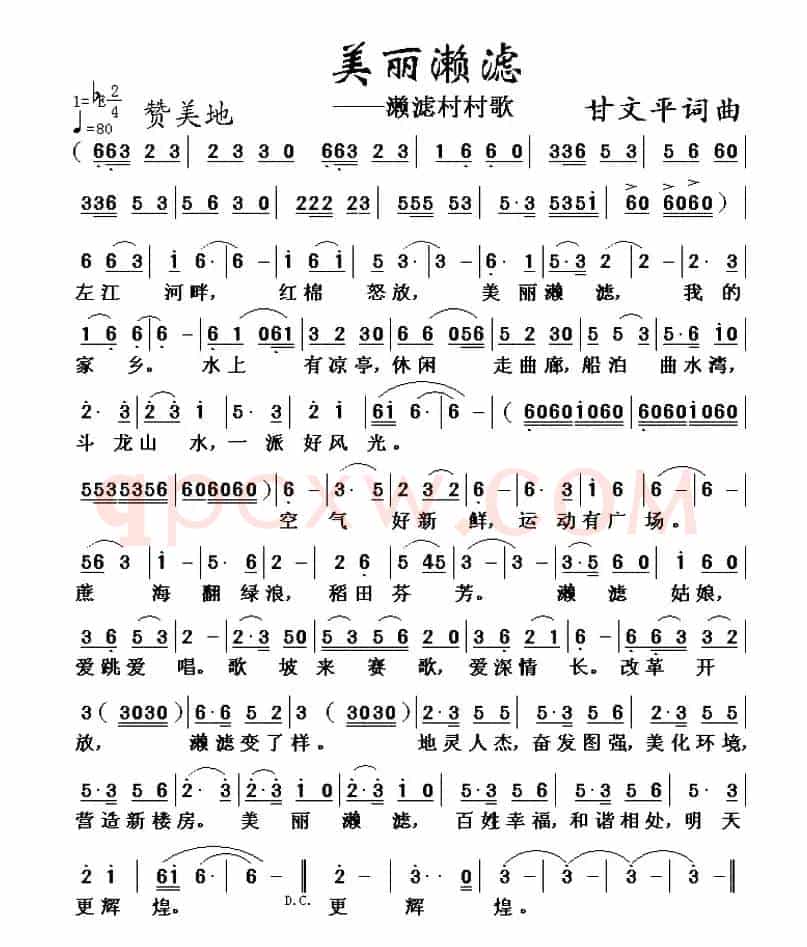 美丽濑滤
1=♭E 2/4
——濑滤村村歌
甘文平词曲
♩=80
赞美地
( 663 2 3 | 2 3 3 0 | 663 2 3 | 1 6 6 0 | 336 5 3 | 5 6 60
336 5 3 | 5 6 3 0 | 222 23 | 555 53 | 5·3 5351 | 60 6060 )
6 6 3 | 1 6· | 6 - | 1 6 1 | 5 3· | 3 - | 6· 1 | 5·3 2 | 2 - | 2· 3
左江 河畔, 红棉 怒放, 美丽濑 滤, 我的
1 6 6 | 6 - | 6 1 061 | 3 2 30 | 6 6 056 | 5 2 30 | 5 5 3 | 5·6 10
家 乡。 水上 有凉亭,休闲 走曲廊,船泊 曲水湾,
2· 3 | 2 3 1 | 5· 3 | 2 1 2 | 61 6· | 6 - | ( 60601060 | 60601060
斗龙山 水,一派好风光。
55535356 | 606060 ) | 6 - | 3· 5 | 2 3 2 | 6 - | 6· 3 | 1 6 | 6 - | 6 -
空 气 好新 鲜,运动有广场。
56 3 | 1 - | 5· 5 | 3 2 | 6 2 | 5 45 | 3 - | 5·5 60 | 1 60
蔗 海翻绿浪,稻田芬 芳。 濑滤 姑娘,
3 6 5 3 | 2 - | 2·3 50 | 5 3 5 6 | 5 3 3 | 3 6 2 1 | 6 - | 6 3 3 2
爱跳爱 唱。歌 坡来 赛歌,爱深情 长。改革 开
3 ( 3030 ) | 6·6 5 2 | 3 ( 3030 ) | 2·3 5 5 | 5·3 5 5 | 5·3 5 2
放, 濑滤变了样。 地灵人杰,奋发图强,美化环境,
5·3 5 6 | 5 5 | 2· 3 | 2·3 1 0 | 2· 3 | 2·3 1 0 | 5·3 5 6 | 5·3 5 6 | 5 3
营造新楼房。美 丽 濑 滤, 百姓幸福,和谐相处,明天
2 1 | 61 6· | 6 - ‖ 2 - | 3· 0 | 3 - | 3 - | 3 - ‖
D.C.
更辉 煌。 更 辉 煌。
qpcxw.COM